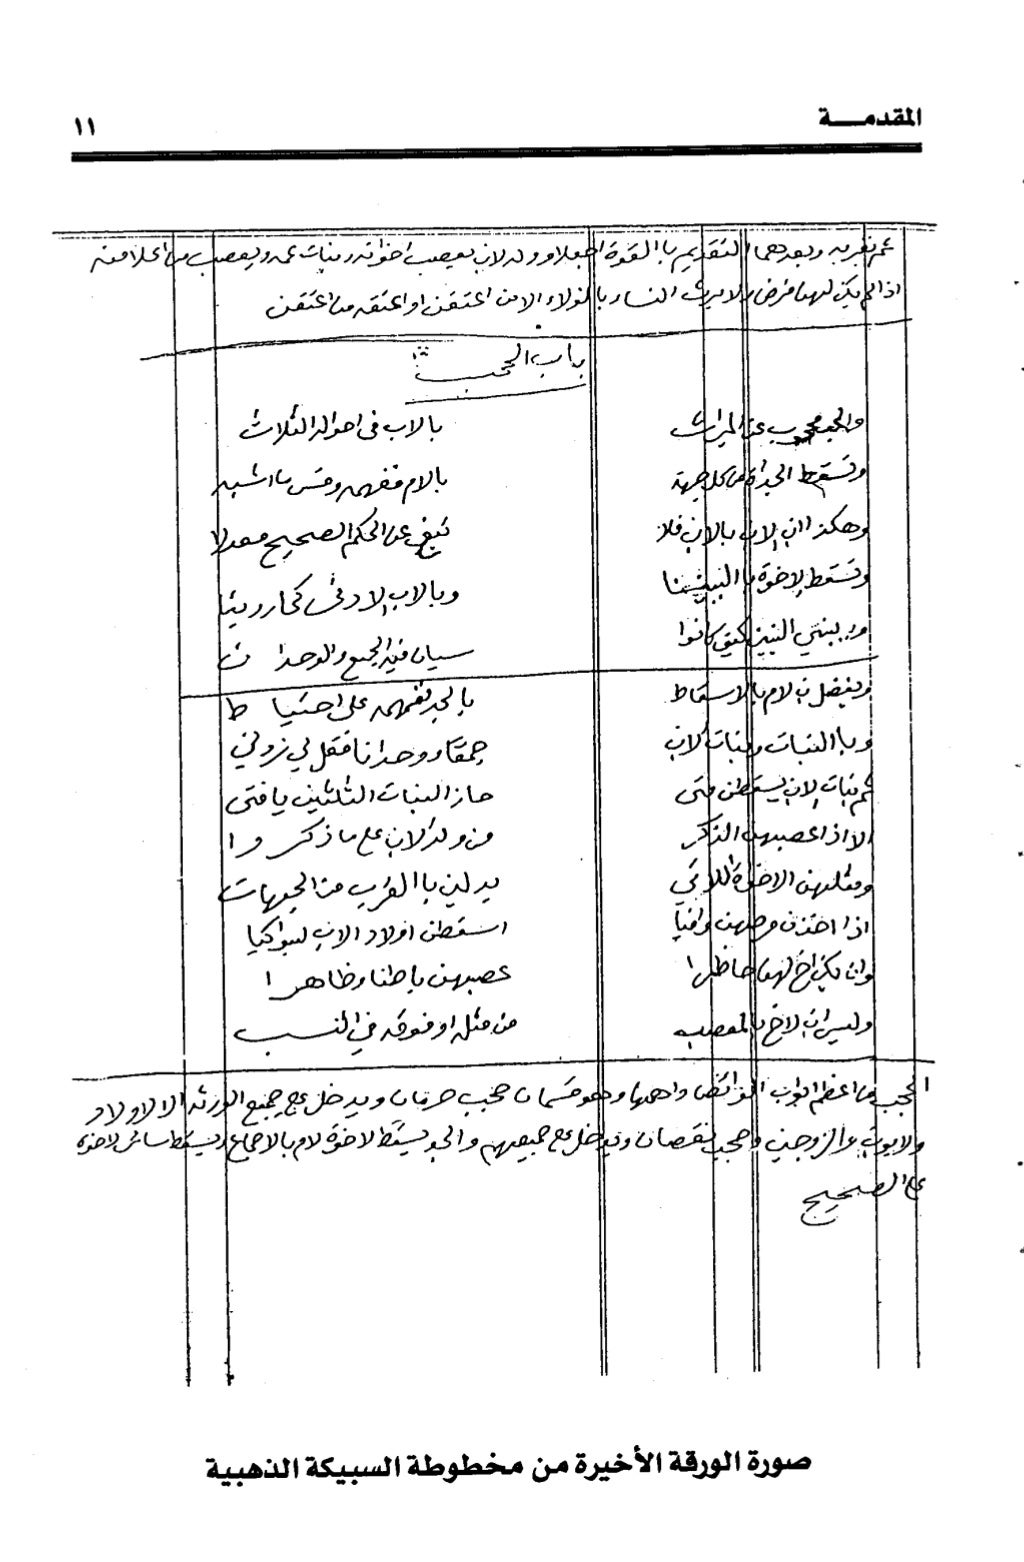 المقدمـــة ١١
ثم بقربه وبعدهما التقديم بالقوة اجعلا وولد لابن يعصب اخواته وبنات عمه ويعصب من اعلا منه
اذا لم يكن لهن فرض ولا يرث النساء بالولاء الا من اعتقن او اعتقه من اعتقن
باب الحجب
والجد محجوب عن الميراث بالاب في احواله الثلاث
وتسقط الجداة من كل جهة بالام فافهمه وقس ما اشبه
وهكذا ابن الابن بالابن فلا تبغ عن الحكم الصحيح معدلا
وتسقط الاخوة بالبنينا وبالاب الادنى كما روينا
وببني البنين كيف كانوا سيان فيه الجمع والوحدان
ويفضل بن الام بالاسقاط بالجد فافهمه على احتياط
وبالبنات وبنات الابن جمعا ووحدانا فقل لي زدني
ثم بنات الابن يسقطن متى حاز البنات الثلثين يا فتى
الا اذا عصبهن الذكر من ولد الابن على ما ذكروا
ومثلهن الاخواة اللاتي يدلين بالقرب من الجهات
اذا اخذن فرضهن وافيا اسقطن اولاد الاب البواكيا
وان يكن اخ لهن حاظرا عصبهن باطنا وظاهرا
وليس ابن الاخ بالمعصب من مثله او فوقه في النسب
الحجب من اعظم ابواب الفرائض واهمها وهو قسمان حجب حرمان ويدخل على جميع الورثه الا الاولاد
والابوين والزوجين وحجب نقصان ويدخل على جميعهم والجد يسقط الاخوة لام بالاجماع ويسقط سائر الاخوة
على الصحيح
صورة الورقة الأخيرة من مخطوطة السبيكة الذهبية